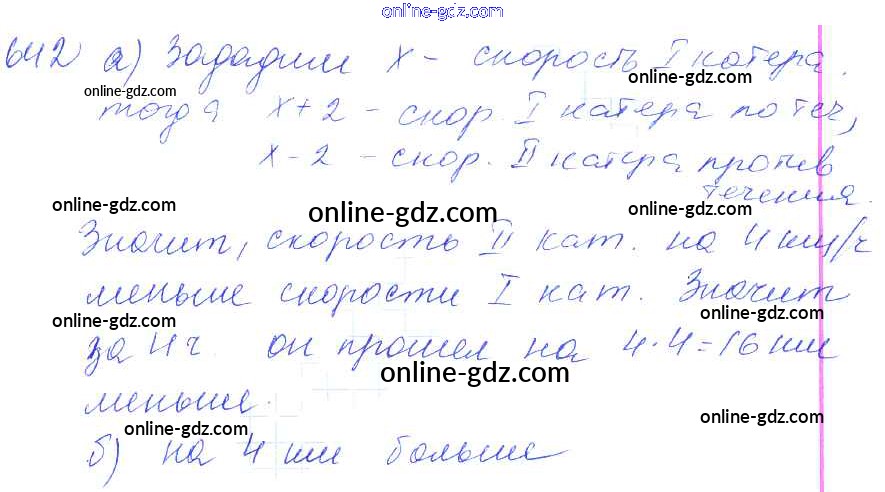 online-gdz.com
642 а) Зададим х - скорость I катера.
online-gdz.com online-gdz.com
тогда х+2 - скор. I катера по теч,
online-gdz.com
х-2 - скор. II катера против
течения.
online-gdz.com online-gdz.com online-gdz.com
Значит, скорость II кат. на 4 км/ч
меньше скорости I кат. Значит
online-gdz.com online-gdz.com
за 4 ч. он прошел на 4·4=16 км
online-gdz.com
меньше.
online-gdz.com online-gdz.com
б) на 4 км больше